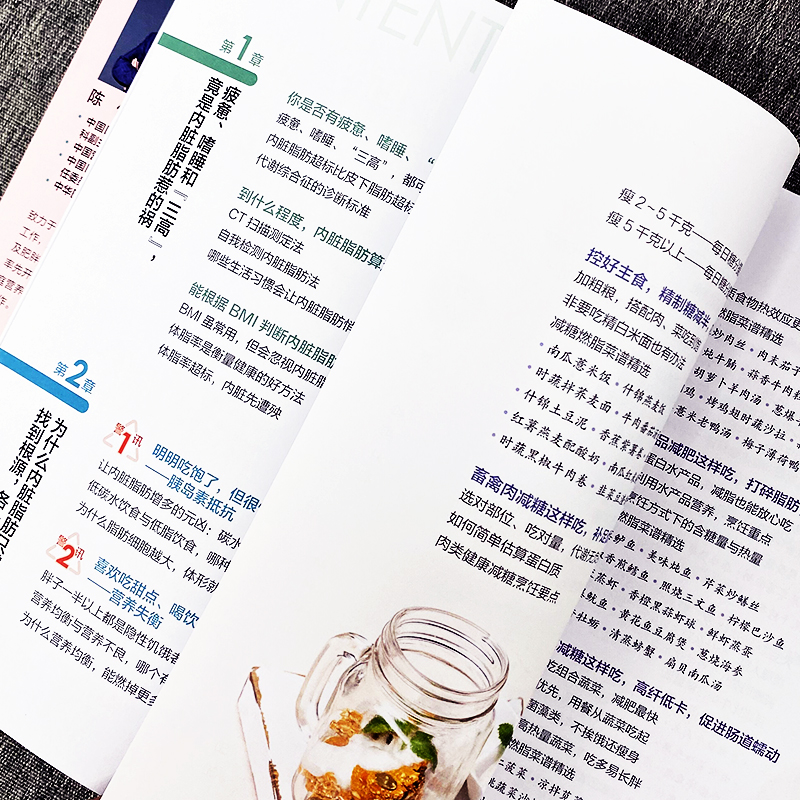 陈
中国
科副
中国
中国
任委
中华
致力于
工作，
及肥胖
率先开
庭营养
作。
NTENT
第1章
疲惫、嗜睡和“三高”，
竟是内脏脂肪惹的祸
你是否有疲惫、嗜睡、“
疲惫、嗜睡、“三高”，都可
内脏脂肪超标比皮下脂肪超标
代谢综合征的诊断标准
到什么程度，内脏脂肪算
CT 扫描测定法
自我检测内脏脂肪法
哪些生活习惯会让内脏脂肪悄
能根据 BMI 判断内脏脂肪
BMI 虽常用，但会忽视内脏脂
体脂率是衡量健康的好方法
体脂率超标，内脏先遭殃
第2章
为什么内脏脂肪
找到根源，各
警1讯
明明吃饱了，但很
——胰岛素抵抗
让内脏脂肪增多的元凶：碳水
低碳水饮食与低脂饮食，哪种
为什么脂肪细胞越大，体形就
警2讯
喜欢吃甜点、喝饮
——营养失衡
胖子一半以上都是隐性饥饿者
营养均衡与营养不良，哪个有
为什么营养均衡，能燃掉更多
瘦 2～5 千克——每日糖
瘦 5 千克以上——每日糖
控好主食，精制糖减半
加粗粮，搭配肉、菜吃
非要吃精白米面也有办法
减糖燃脂菜谱精选
• 南瓜薏米饭 • 什锦燕麦饭
• 时蔬拌荞麦面 • 牛肉
• 什锦土豆泥 • 香蕉紫薯
• 红薯燕麦配酸奶 • 南瓜
• 时蔬黑椒牛肉卷 • 韭菜
畜禽肉减糖这样吃，补
选对部位、吃对量，代谢
如何简单估算蛋白质
肉类健康减糖烹饪要点
食物热效应更
燃脂菜谱精选
炒肉丝 • 肉末茄子
炖牛腩 • 蒜香牛肉粒
胡萝卜羊肉汤 • 葱爆
鸡 • 烤鸡翅时蔬沙拉
薏米老鸭汤 • 梅子薄荷鸭
品减肥这样吃，打碎脂肪
蛋白水产品，减脂也能放心吃
利用水产品营养，烹饪重点
烹饪方式下的含糖量与热量
燃脂菜谱精选
鲈鱼 • 美味炖鱼 • 芹菜炒鳝丝
香煎鳕鱼 • 照烧三文鱼 • 柠檬巴沙鱼
蒸虾 • 香橙黑蒜虾球 • 鲜虾蒸蛋
鱿鱼 • 黄花鱼豆腐煲 • 葱烧海参
牡蛎 • 清蒸螃蟹 • 扇贝南瓜汤
减糖这样吃，高纤低卡，促进肠道蠕动
吃组合蔬菜，减肥最快
优先，用餐从蔬菜吃起
菌藻类，不挨饿还瘦身
高热量蔬菜，吃多易长胖
燃脂菜谱精选
菠菜 • 凉拌